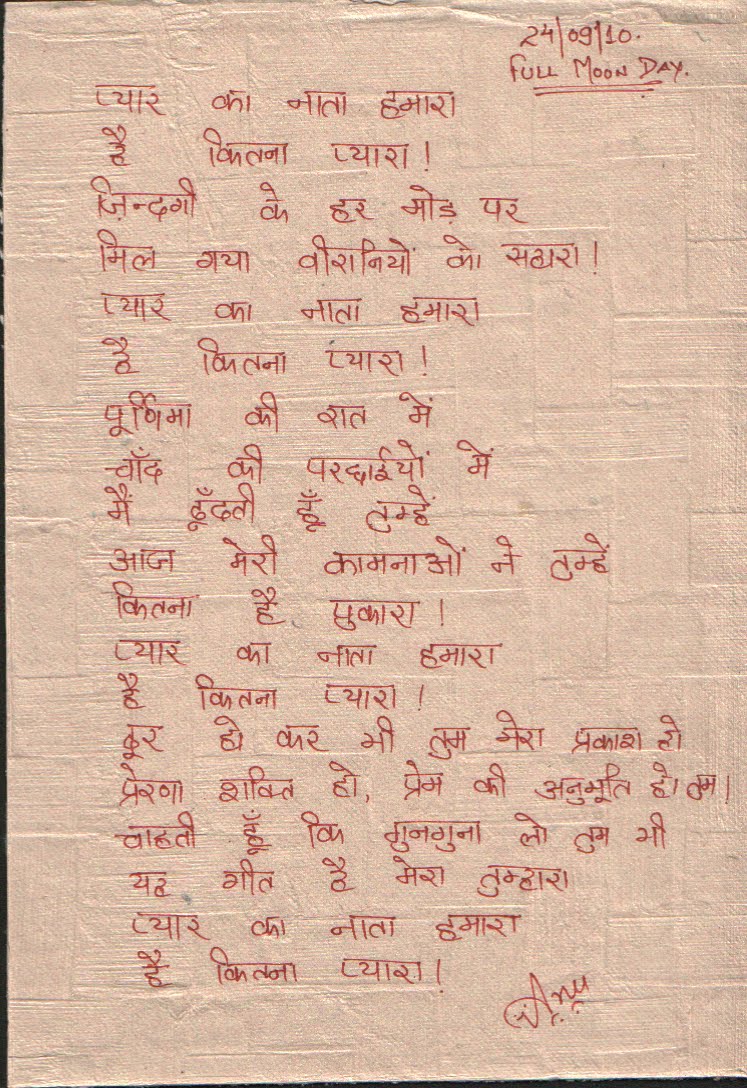 24/09/10.
FULL MOON DAY.
प्यार का नाता हमारा
है कितना प्यारा!
ज़िन्दगी के हर मोड़ पर
मिल गया वीरानियों को सहारा!
प्यार का नाता हमारा
है कितना प्यारा!
पूर्णिमा की रात में
चाँद की परछाईयों में
मैं ढूँढती हूँ तुम्हें
आज मेरी कामनाओं ने तुम्हें
कितना है पुकारा!
प्यार का नाता हमारा
है कितना प्यारा!
दूर हो कर भी तुम मेरा प्रकाश हो
प्रेरणा शक्ति हो, प्रेम की अनुभूति हो तुम।
चाहती हूँ कि गुनगुना लो तुम भी
यह गीत है मेरा तुम्हारा
प्यार का नाता हमारा
है कितना प्यारा!
Anu